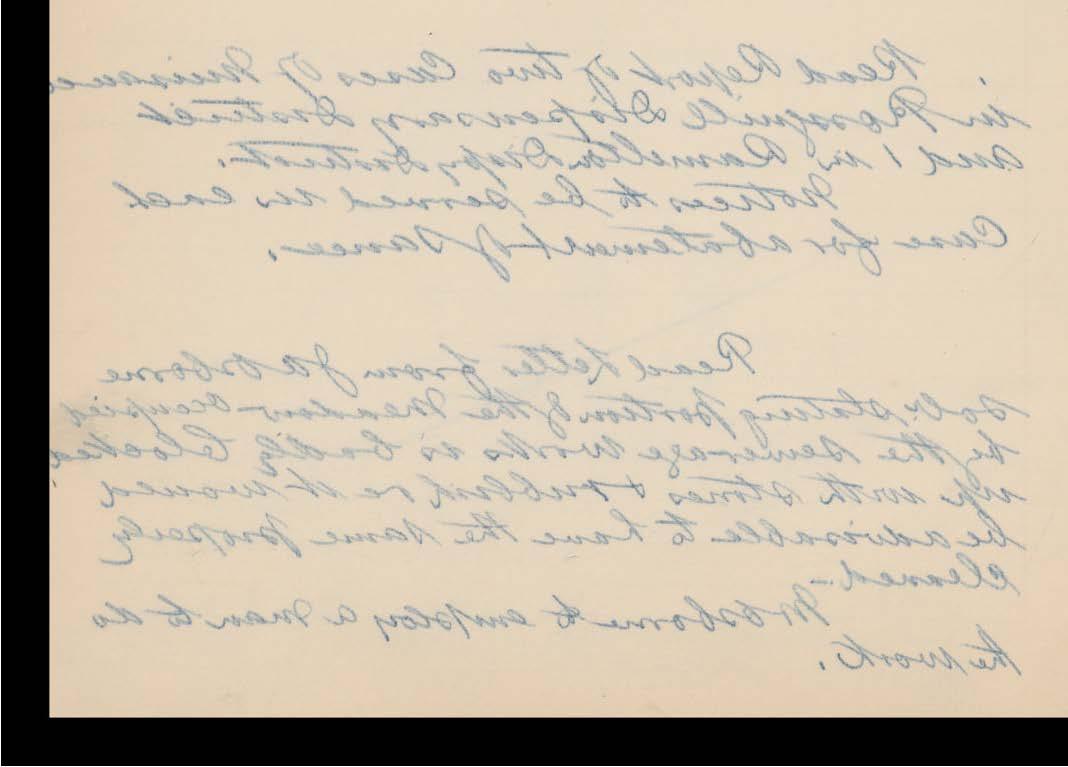 Read Report of two Cases of Nuisances
in Rosguill Dispensary District
and 1 in Ramelton Dispy District.
Notices to be served in each
Case for abatement of Same.
Read Letter from J A Osborne
stating portion of the Meadow occupied
by the Sewerage Works is badly blocked
up with stones & rubbish & it would
be advisable to have the same properly
cleaned -
Mr Osborne to employ a man to do
the work.